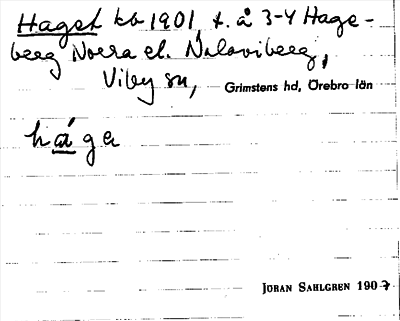 Haget kb 1901, t. å 3-4 Hage-
berg Norra el. Nalaviberg,
Viby sn, Grimstens hd, Örebro län
hága
JÖRAN SAHLGREN 1907